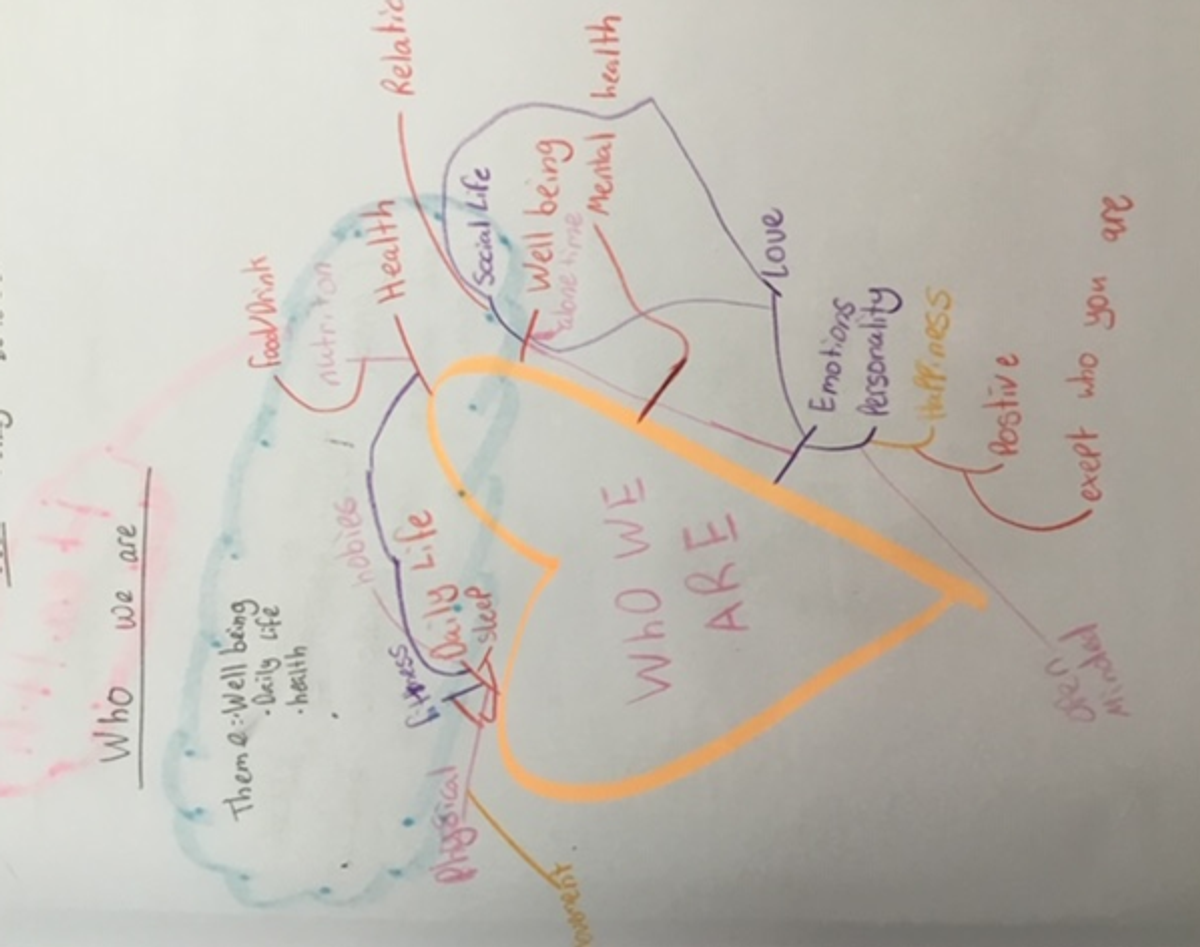 Who we are
Theme: Well being
• Daily Life
• health
food/Drink
nutriton
Health
hobies
Daily Life
sleep
fitness
Physical
Social Life
Well being
alone time
Mental health
WhO WE
ARE
Love
Emotions
Personality
Happiness
Postive
exept who you are
open
Minded